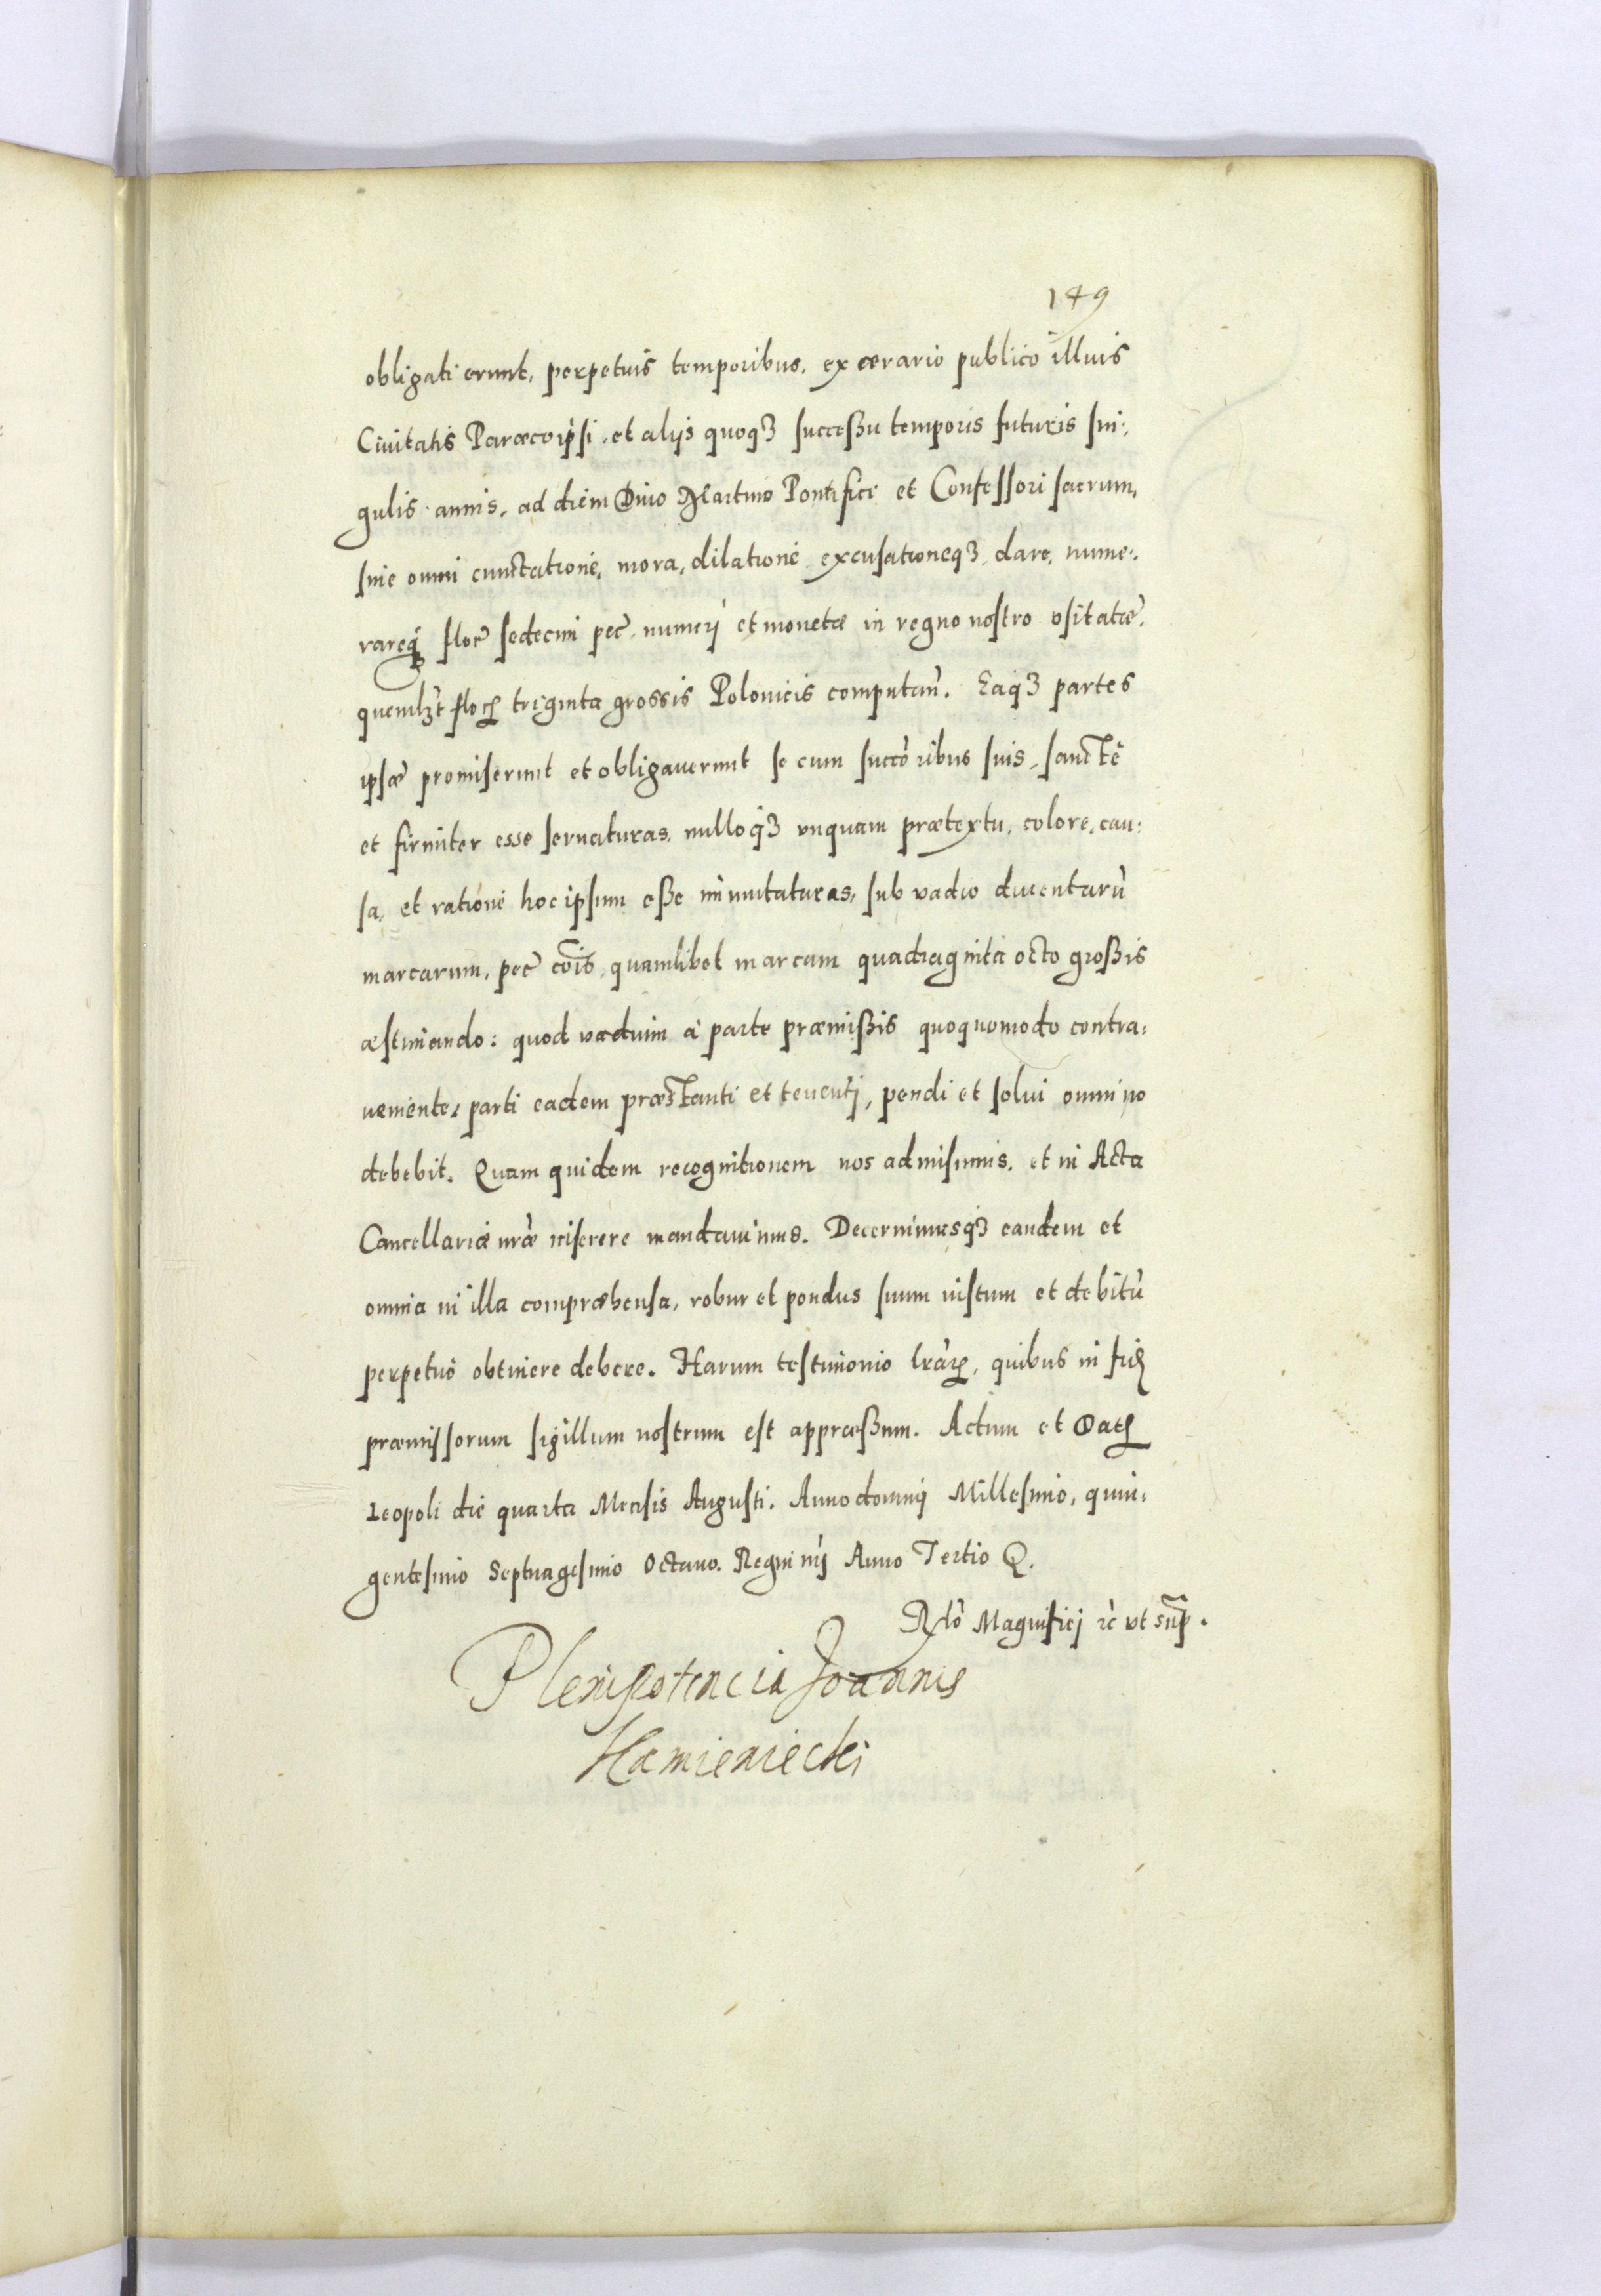 149
obligati erunt, perpetuis temporibus, ex ærario publico illius
Ciuitatis Paræco ip̃si, et alijs quoqȝ successu temporis futuris sin:,
gulis annis, ad diem Diuo Martino Pontifici et Confessori sacrum,
sine omni cunctatione, mora, dilatione excusationeqȝ, dare, nume:,
rareqȝ floř sedecim peč, numeri et monetæ in regno nostro vsitatæ,
quemlȝt floꝝ triginta grossis Polonicis computan̄. Eaqȝ partes
ipsæ promiserunt et obligauerunt se cum succo᷑ribus suis, sanctè
et firmiter esse seruaturas, nulloqȝ vnquam prætextu, colore, cau:
sa, et ratione hoc ipsum esse immutaturas, sub vadio ducentarū
marcarum, peč cōis, quamlibet marcam quadraginta octo grossis
æstimando: quod vadium à parte præmissis quoquomodo contra:
ueniente, parti eadem præstanti et tenenti, pendi et solui omnino
debebit. Quam quidem recognitionem nos admisimus, et in Acta
Cancellariæ nr̃æ inserere mandauimus. Decernimusqȝ eandem et
omnia in illa compræhensa, robur et pondus suum iustum et debitū
perpetuò obtinere debere. Harum testimonio lr̃arꝝ, quibus in fidẽ
præmissorum sigillum nostrum est appræssum. Actum et Datꝝ
Leopoli die quarta Mensis Augusti. Anno dominj Millesimo, quin:
gentesimo Septuagesimo Octauo. Regni nr̃j Anno Tertio
Rlõ Magnificj ꝛc̃ vt sup̃.
Plenipotencia Joannis
Kamieniecki